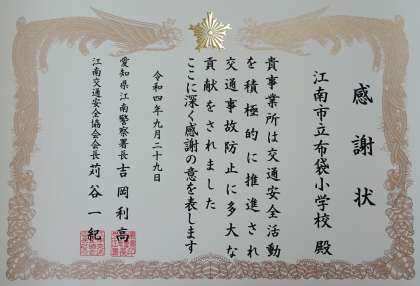 感謝状
江南市立布袋小学校 殿
貴事業所は交通安全活動
を積極的に推進され
交通事故防止に多大な
貢献をされました
ここに深く感謝の意を表します
令和四年九月二十九日
愛知県江南警察署長 吉岡利高
江南交通安全協会会長 苅谷一紀